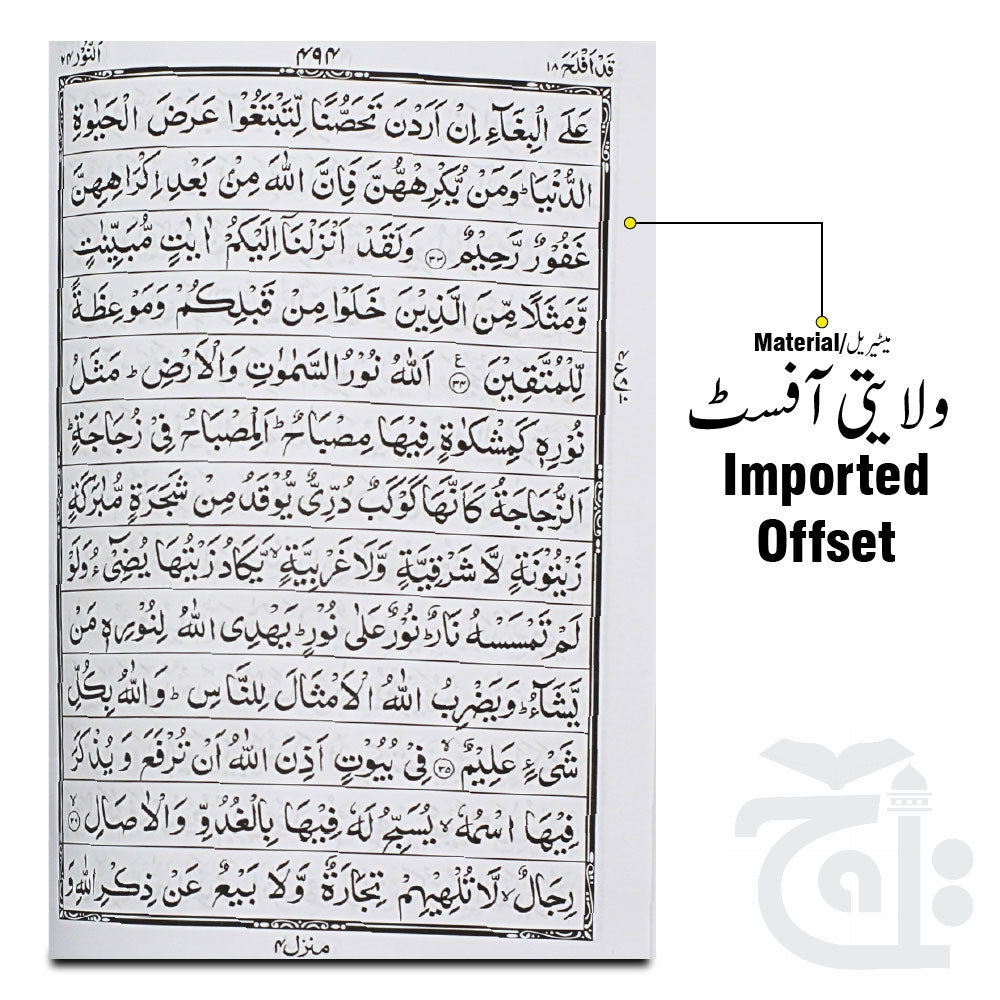 قَدْ اَفْلَحَ ۱۸
۴۹۴
اَلنُّوْر ۲۴
عَلَى الْبِغَآءِ اِنْ اَرَدْنَ تَحَصُّنًا لِّتَبْتَغُوْا عَرَضَ الْحَيٰوةِ
الدُّنْيَا ؕ وَمَنْ يُّكْرِهْهُّنَّ فَاِنَّ اللّٰهَ مِنْۢ بَعْدِ اِكْرَاهِهِنَّ
غَفُوْرٌ رَّحِيْمٌ ﴿۳۳﴾ وَلَقَدْ اَنْزَلْنَاۤ اِلَيْكُمْ اٰيٰتٍ مُّبَيِّنٰتٍ
وَّمَثَلًا مِّنَ الَّذِيْنَ خَلَوْا مِنْ قَبْلِكُمْ وَمَوْعِظَةً
لِّلْمُتَّقِيْنَ ﴿۳۴﴾ ع اَللّٰهُ نُوْرُ السَّمٰوٰتِ وَالْاَرْضِ ؕ مَثَلُ
نُوْرِهٖ كَمِشْكٰوةٍ فِيْهَا مِصْبَاحٌ ؕ اَلْمِصْبَاحُ فِيْ زُجَاجَةٍ ؕ
اَلزُّجَاجَةُ كَاَنَّهَا كَوْكَبٌ دُرِّيٌّ يُّوْقَدُ مِنْ شَجَرَةٍ مُّبٰرَكَةٍ
زَيْتُوْنَةٍ لَّا شَرْقِيَّةٍ وَّلَا غَرْبِيَّةٍ ۙ يَّكَادُ زَيْتُهَا يُضِيْٓءُ وَلَوْ
لَمْ تَمْسَسْهُ نَارٌ ؕ نُوْرٌ عَلٰى نُوْرٍ ؕ يَهْدِى اللّٰهُ لِنُوْرِهٖ مَنْ
يَّشَآءُ ؕ وَيَضْرِبُ اللّٰهُ الْاَمْثَالَ لِلنَّاسِ ؕ وَاللّٰهُ بِكُلِّ
شَيْءٍ عَلِيْمٌ ۙ ﴿۳۵﴾ فِيْ بُيُوْتٍ اَذِنَ اللّٰهُ اَنْ تُرْفَعَ وَيُذْكَرَ
فِيْهَا اسْمُهٗ ۙ يُسَبِّحُ لَهٗ فِيْهَا بِالْغُدُوِّ وَالْاٰصَالِ ۙ ﴿۳۶﴾
رِجَالٌ ۙ لَّا تُلْهِيْهِمْ تِجَارَةٌ وَّلَا بَيْعٌ عَنْ ذِكْرِ اللّٰهِ وَ
منزل ۴
Material/میٹیریل
ولایتی آفسٹ
Imported
Offset